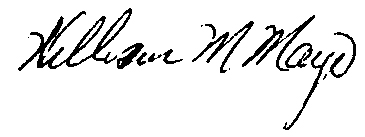 William M. Mayo